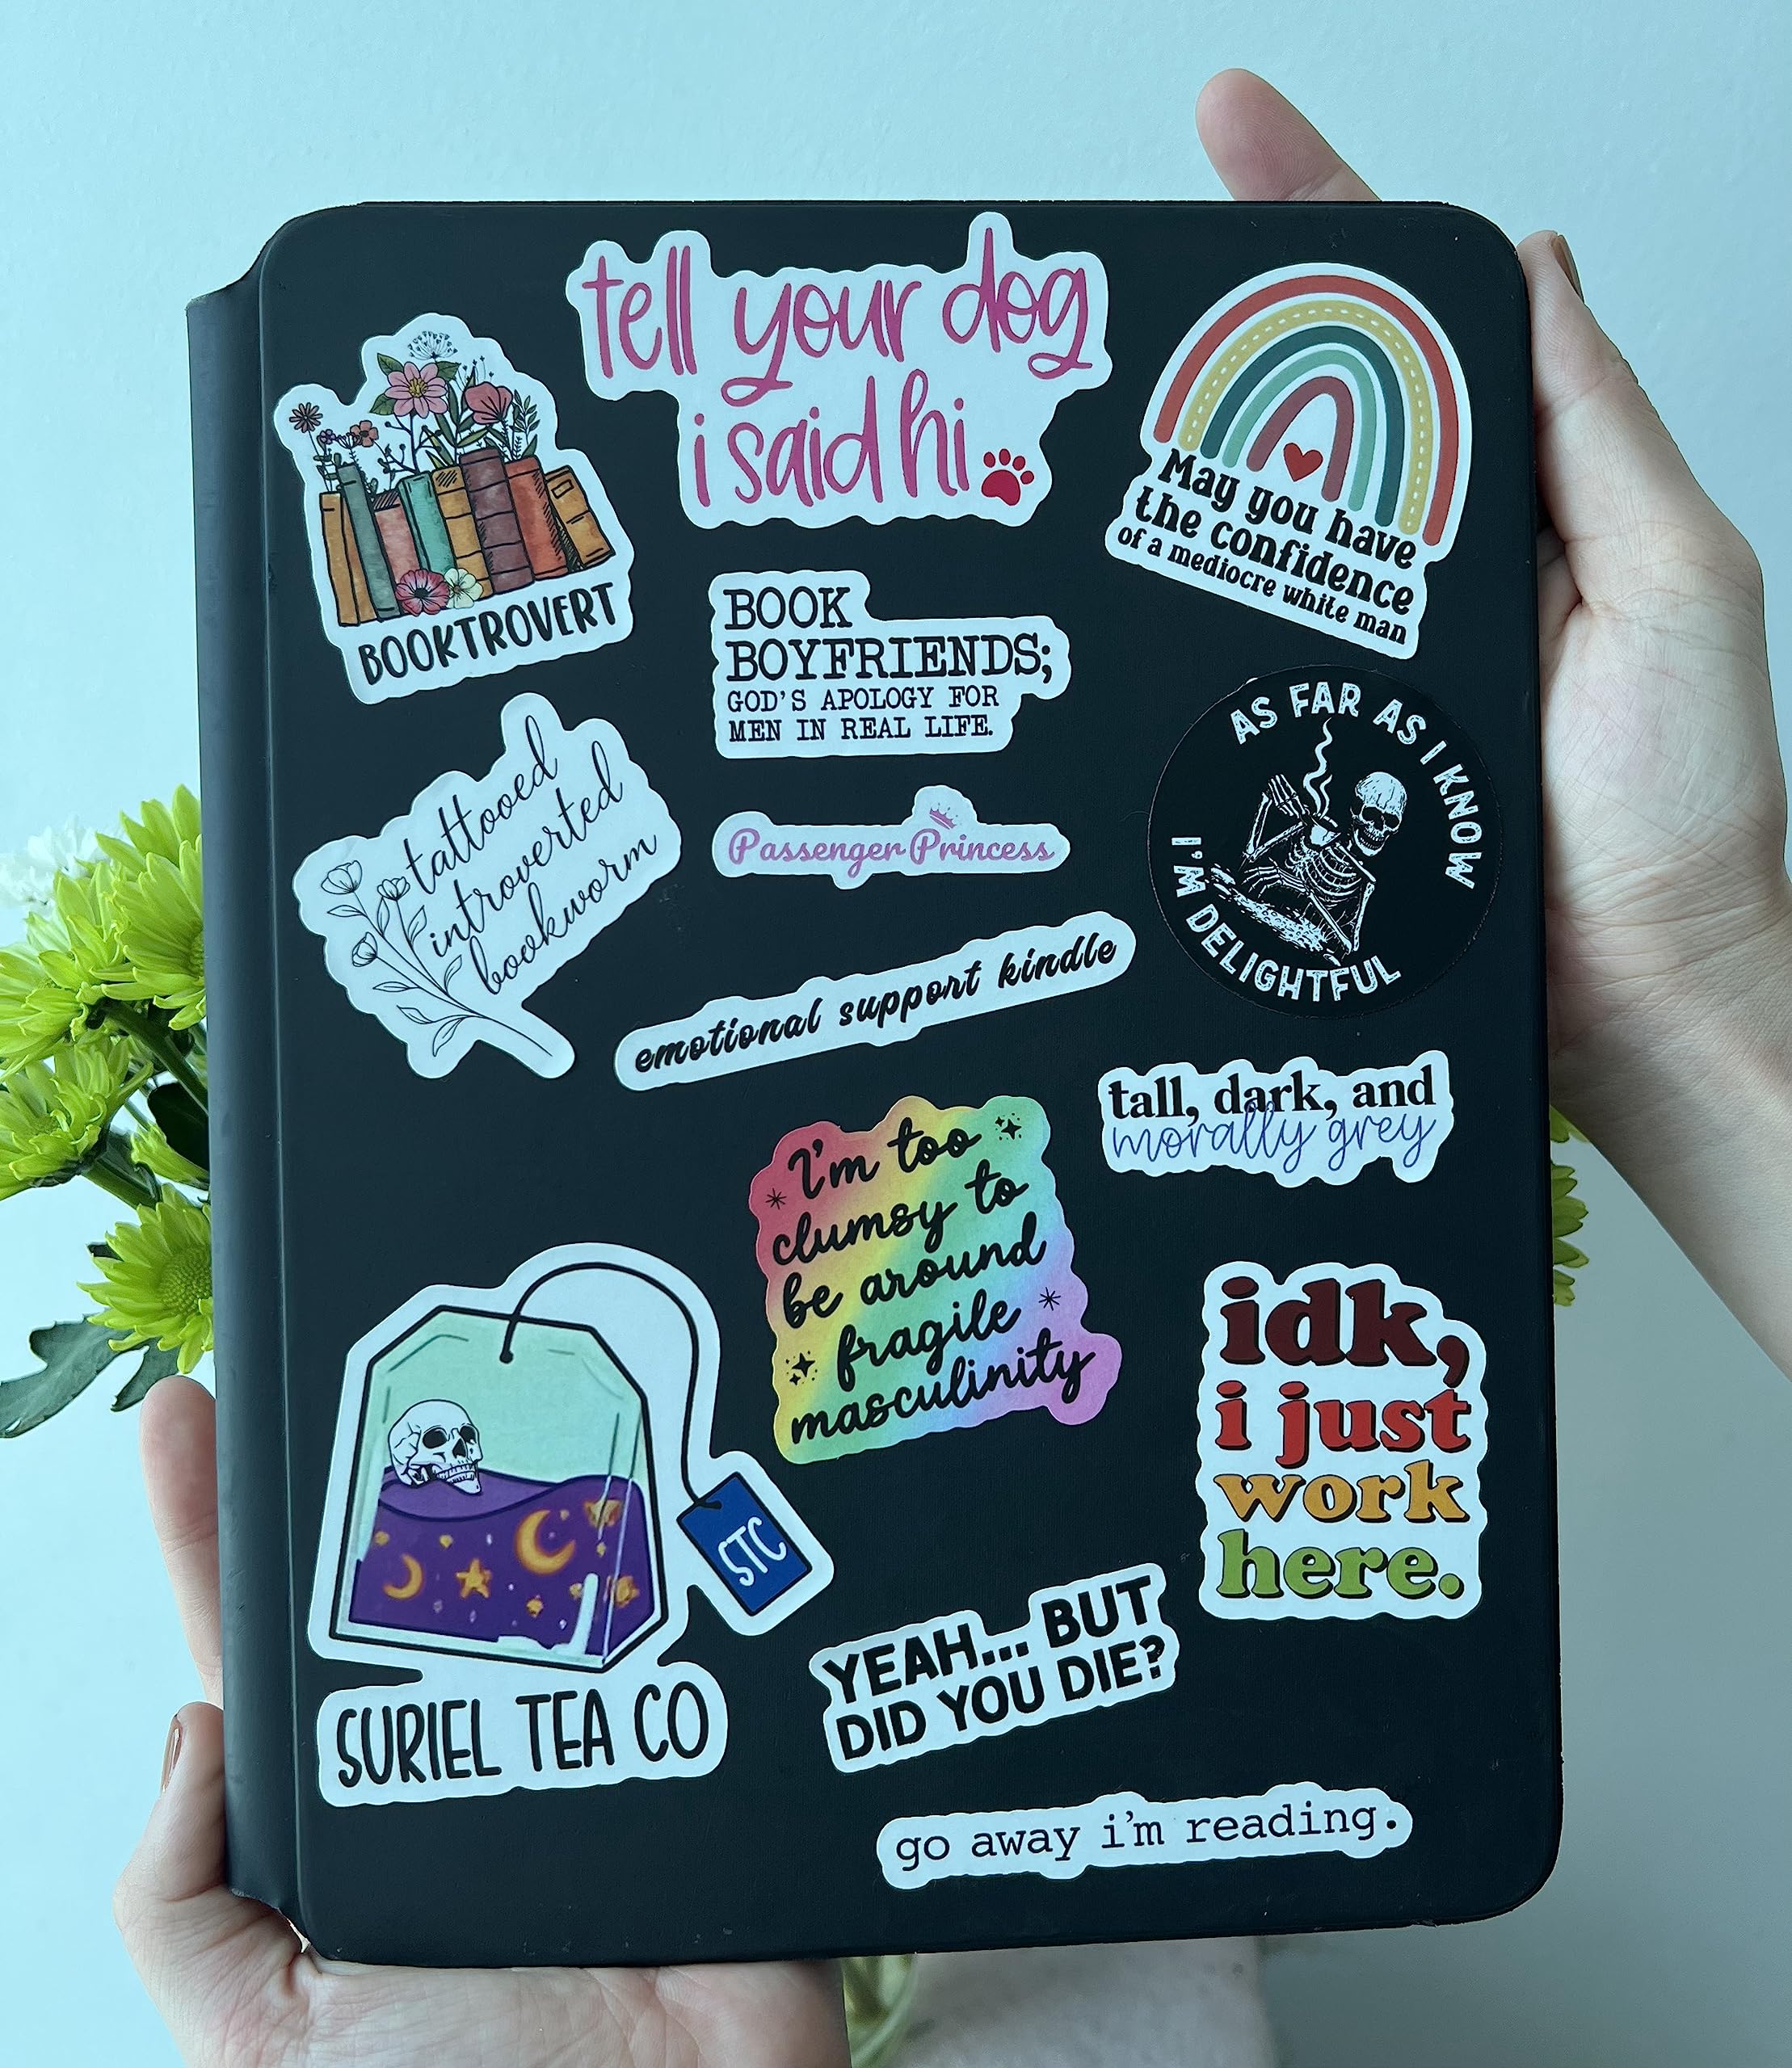 tell your dog
i said hi
BOOKTROVERT
May you have
the confidence
of a mediocre white man
BOOK
BOYFRIENDS;
GOD'S APOLOGY FOR
MEN IN REAL LIFE.
AS FAR AS I KNOW
I'M DELIGHTFUL
tattooed
introverted
bookworm
Passenger Princess
emotional support kindle
tall, dark, and
morally grey
I'm too
clumsy to
be around
fragile
masculinity
idk,
i just
work
here.
STC
SURIEL TEA CO
YEAH... BUT
DID YOU DIE?
go away i'm reading.